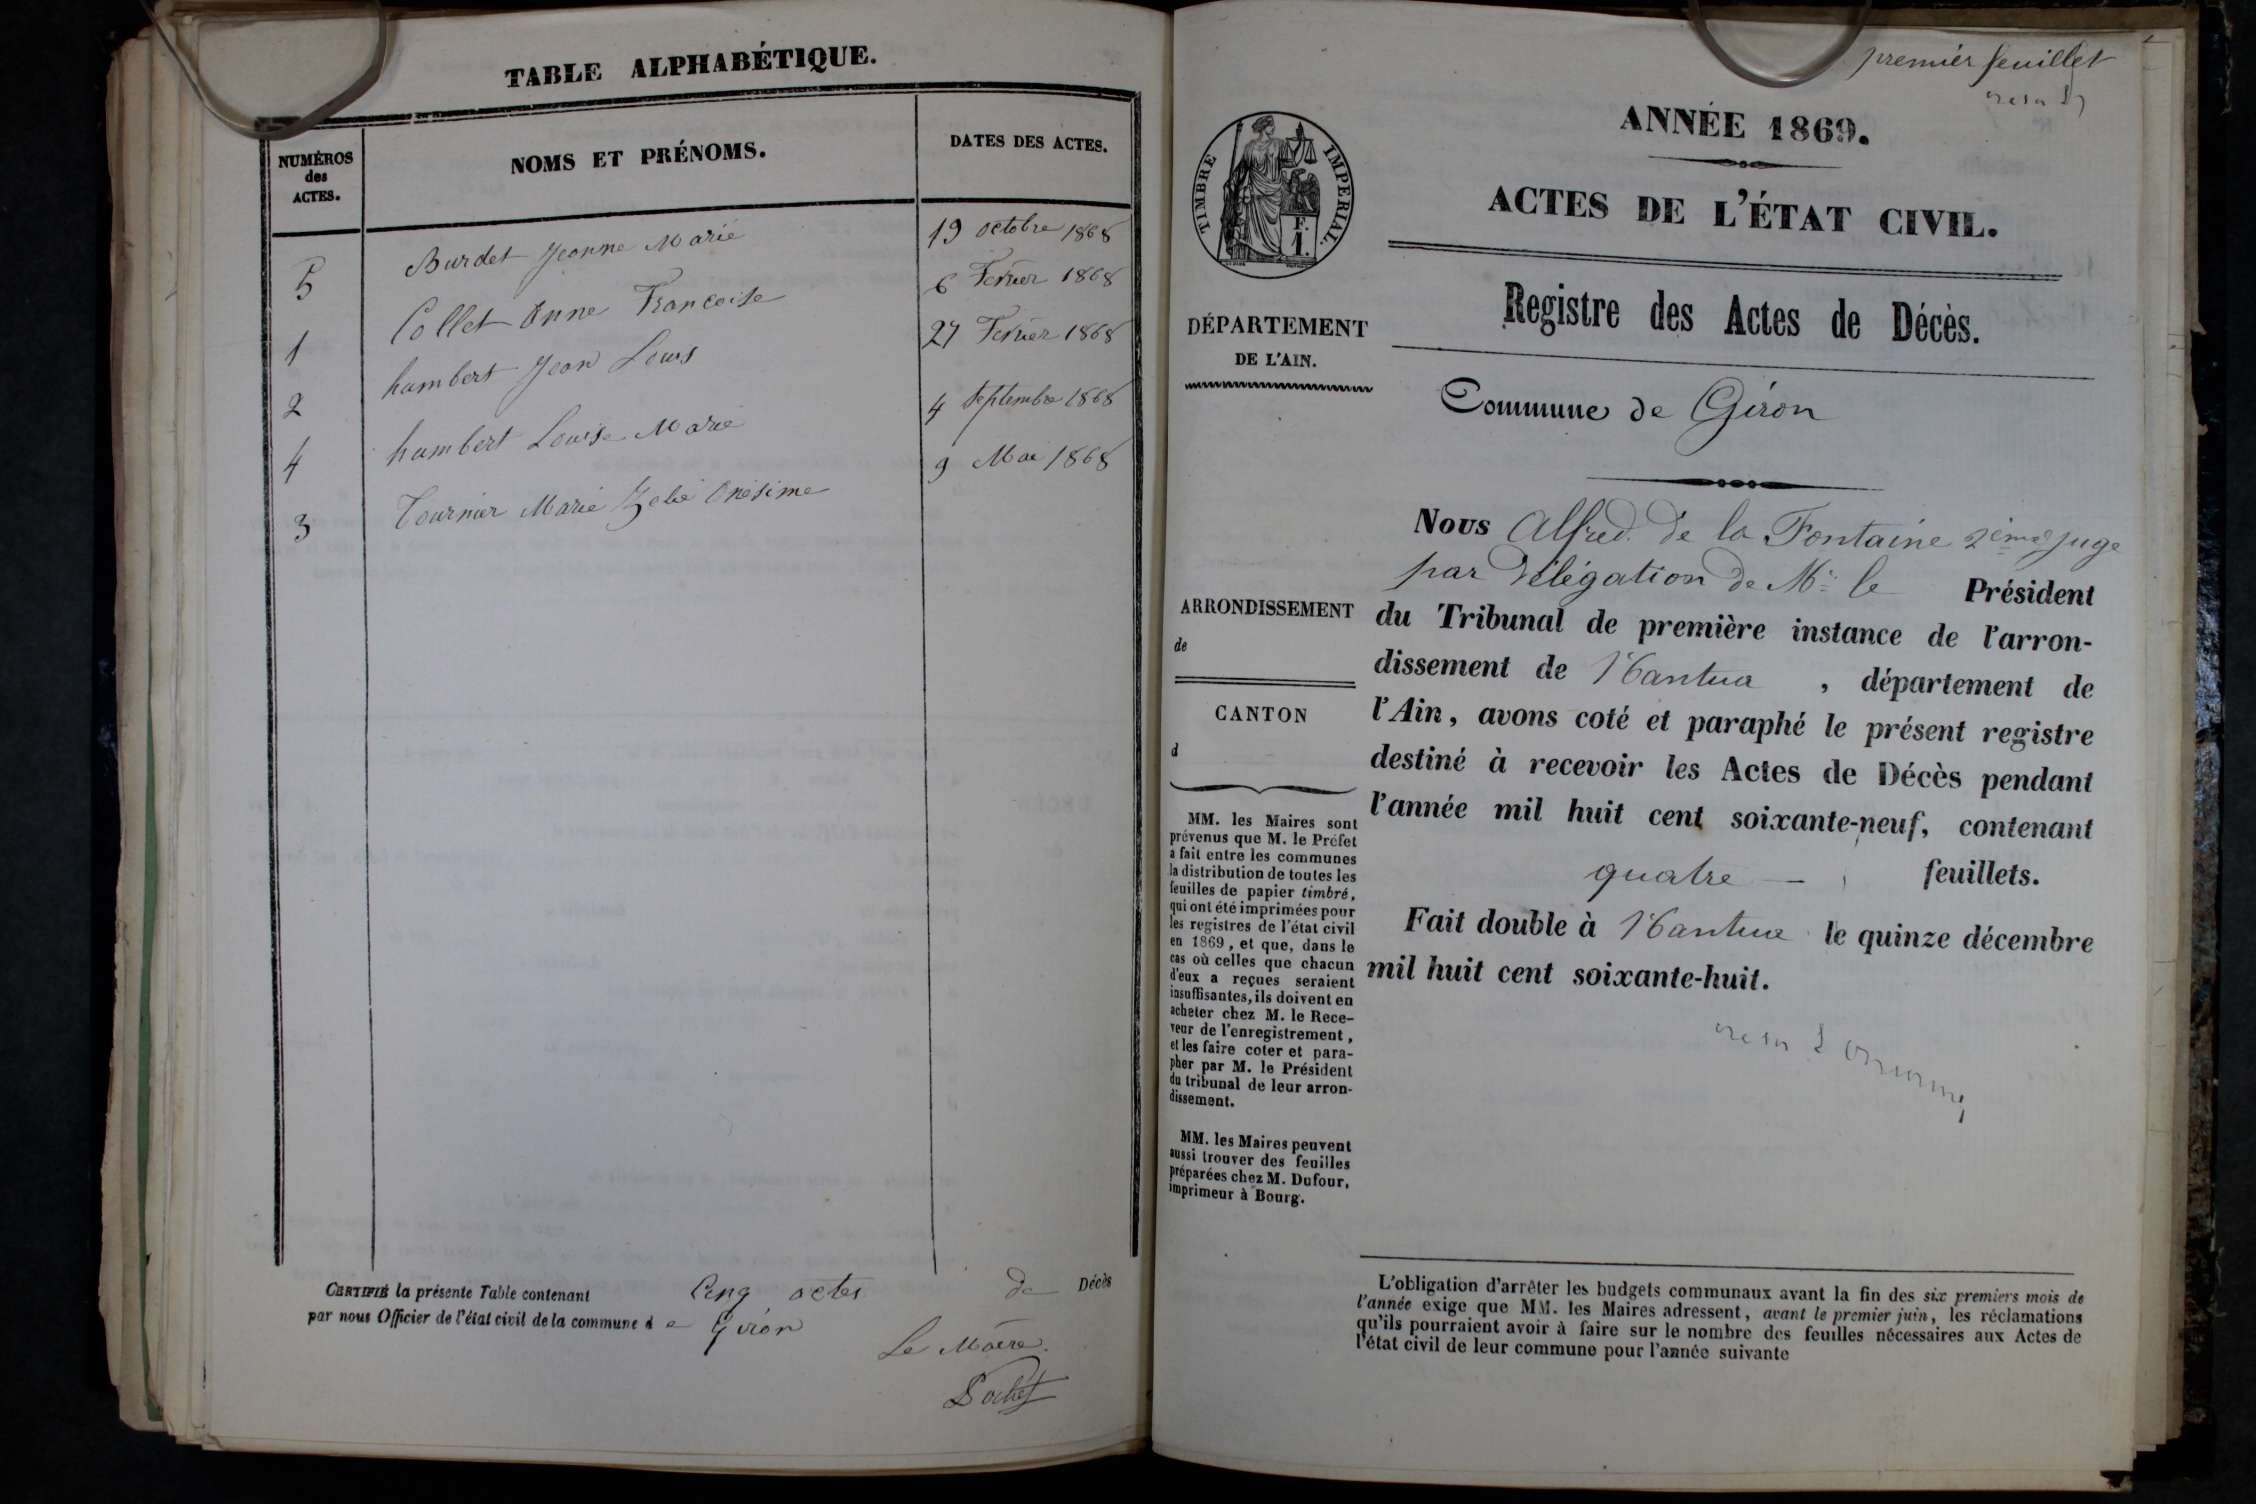 TABLE ALPHABÉTIQUE.
NUMÉROS
des
ACTES.
NOMS ET PRÉNOMS.
DATES DES ACTES.
5 Burdet Jeanne Marie 19 octobre 1868
1 Collet Anne Francoise 6 Fevrier 1868
2 humbert Jean Louis 27 Fevrier 1868
4 humbert Louise Marie 4 Septembre 1868
3 Tournier Marie Zelie Onésime 9 Mai 1868
CERTIFIÉ la présente Table contenant Cinq actes de Décès
par nous Officier de l'état civil de la commune de Giron
Le Maire
premier feuillet
ANNÉE 1869.
ACTES DE L'ÉTAT CIVIL.
TIMBRE IMPERIAL.
F.
1.
DÉPARTEMENT
DE L'AIN.
Registre des Actes de Décès.
Commune de Giron
ARRONDISSEMENT
de
CANTON
d
MM. les Maires sont
prévenus que M. le Préfet
a fait entre les communes
la distribution de toutes les
feuilles de papier timbré,
qui ont été imprimées pour
les registres de l'état civil
en 1869, et que, dans le
cas où celles que chacun
d'eux a reçues seraient
insuffisantes, ils doivent en
acheter chez M. le Rece-
veur de l'enregistrement,
et les faire coter et para-
pher par M. le Président
du tribunal de leur arron-
dissement.
MM. les Maires peuvent
aussi trouver des feuilles
préparées chez M. Dufour,
imprimeur à Bourg.
Nous Alfred de la Fontaine 2ème juge
par délégation de Mr le Président
du Tribunal de première instance de l'arron-
dissement de Nantua, département de
l'Ain, avons coté et paraphé le présent registre
destiné à recevoir les Actes de Décès pendant
l'année mil huit cent soixante-neuf, contenant
quatre — feuillets.
Fait double à Nantua le quinze décembre
mil huit cent soixante-huit.
L'obligation d'arrêter les budgets communaux avant la fin des six premiers mois de
l'année exige que MM. les Maires adressent, avant le premier juin, les réclamations
qu'ils pourraient avoir à faire sur le nombre des feuilles nécessaires aux Actes de
l'état civil de leur commune pour l'année suivante